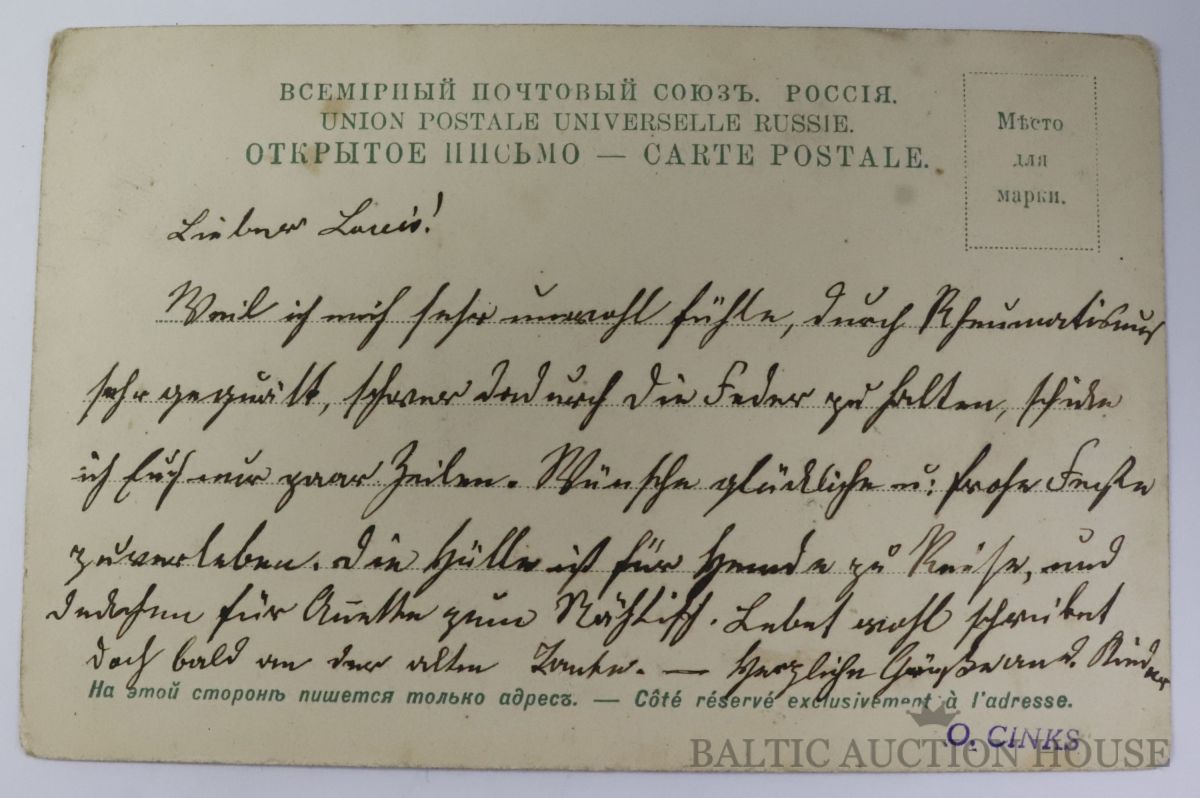 ВСЕМІРНЫЙ ПОЧТОВЫЙ СОЮЗЪ. РОССІЯ.
UNION POSTALE UNIVERSELLE RUSSIE.
ОТКРЫТОЕ ПИСЬМО — CARTE POSTALE.
Мѣсто
для
марки.
Lieber Louis!
Weil ich mich sehr unwohl fühle, durch Rheumatismus
sehr gequält, schwer dadurch die Feder zu halten, schicke
ich Euch nur paar Zeilen. Wünsche glückliche u: frohe Feste
zuverleben. Die Hülle ist für Hemde zu Reise, und
für Anette zum Nähtisch. Lebet wohl schreibet
doch bald an der alten Tante. — Herzliche Grüße an d. Kinder
На этой сторонѣ пишется только адресъ. — Côté réservé exclusivement à l'adresse.
O. CINKS
BALTIC AUCTION HOUSE